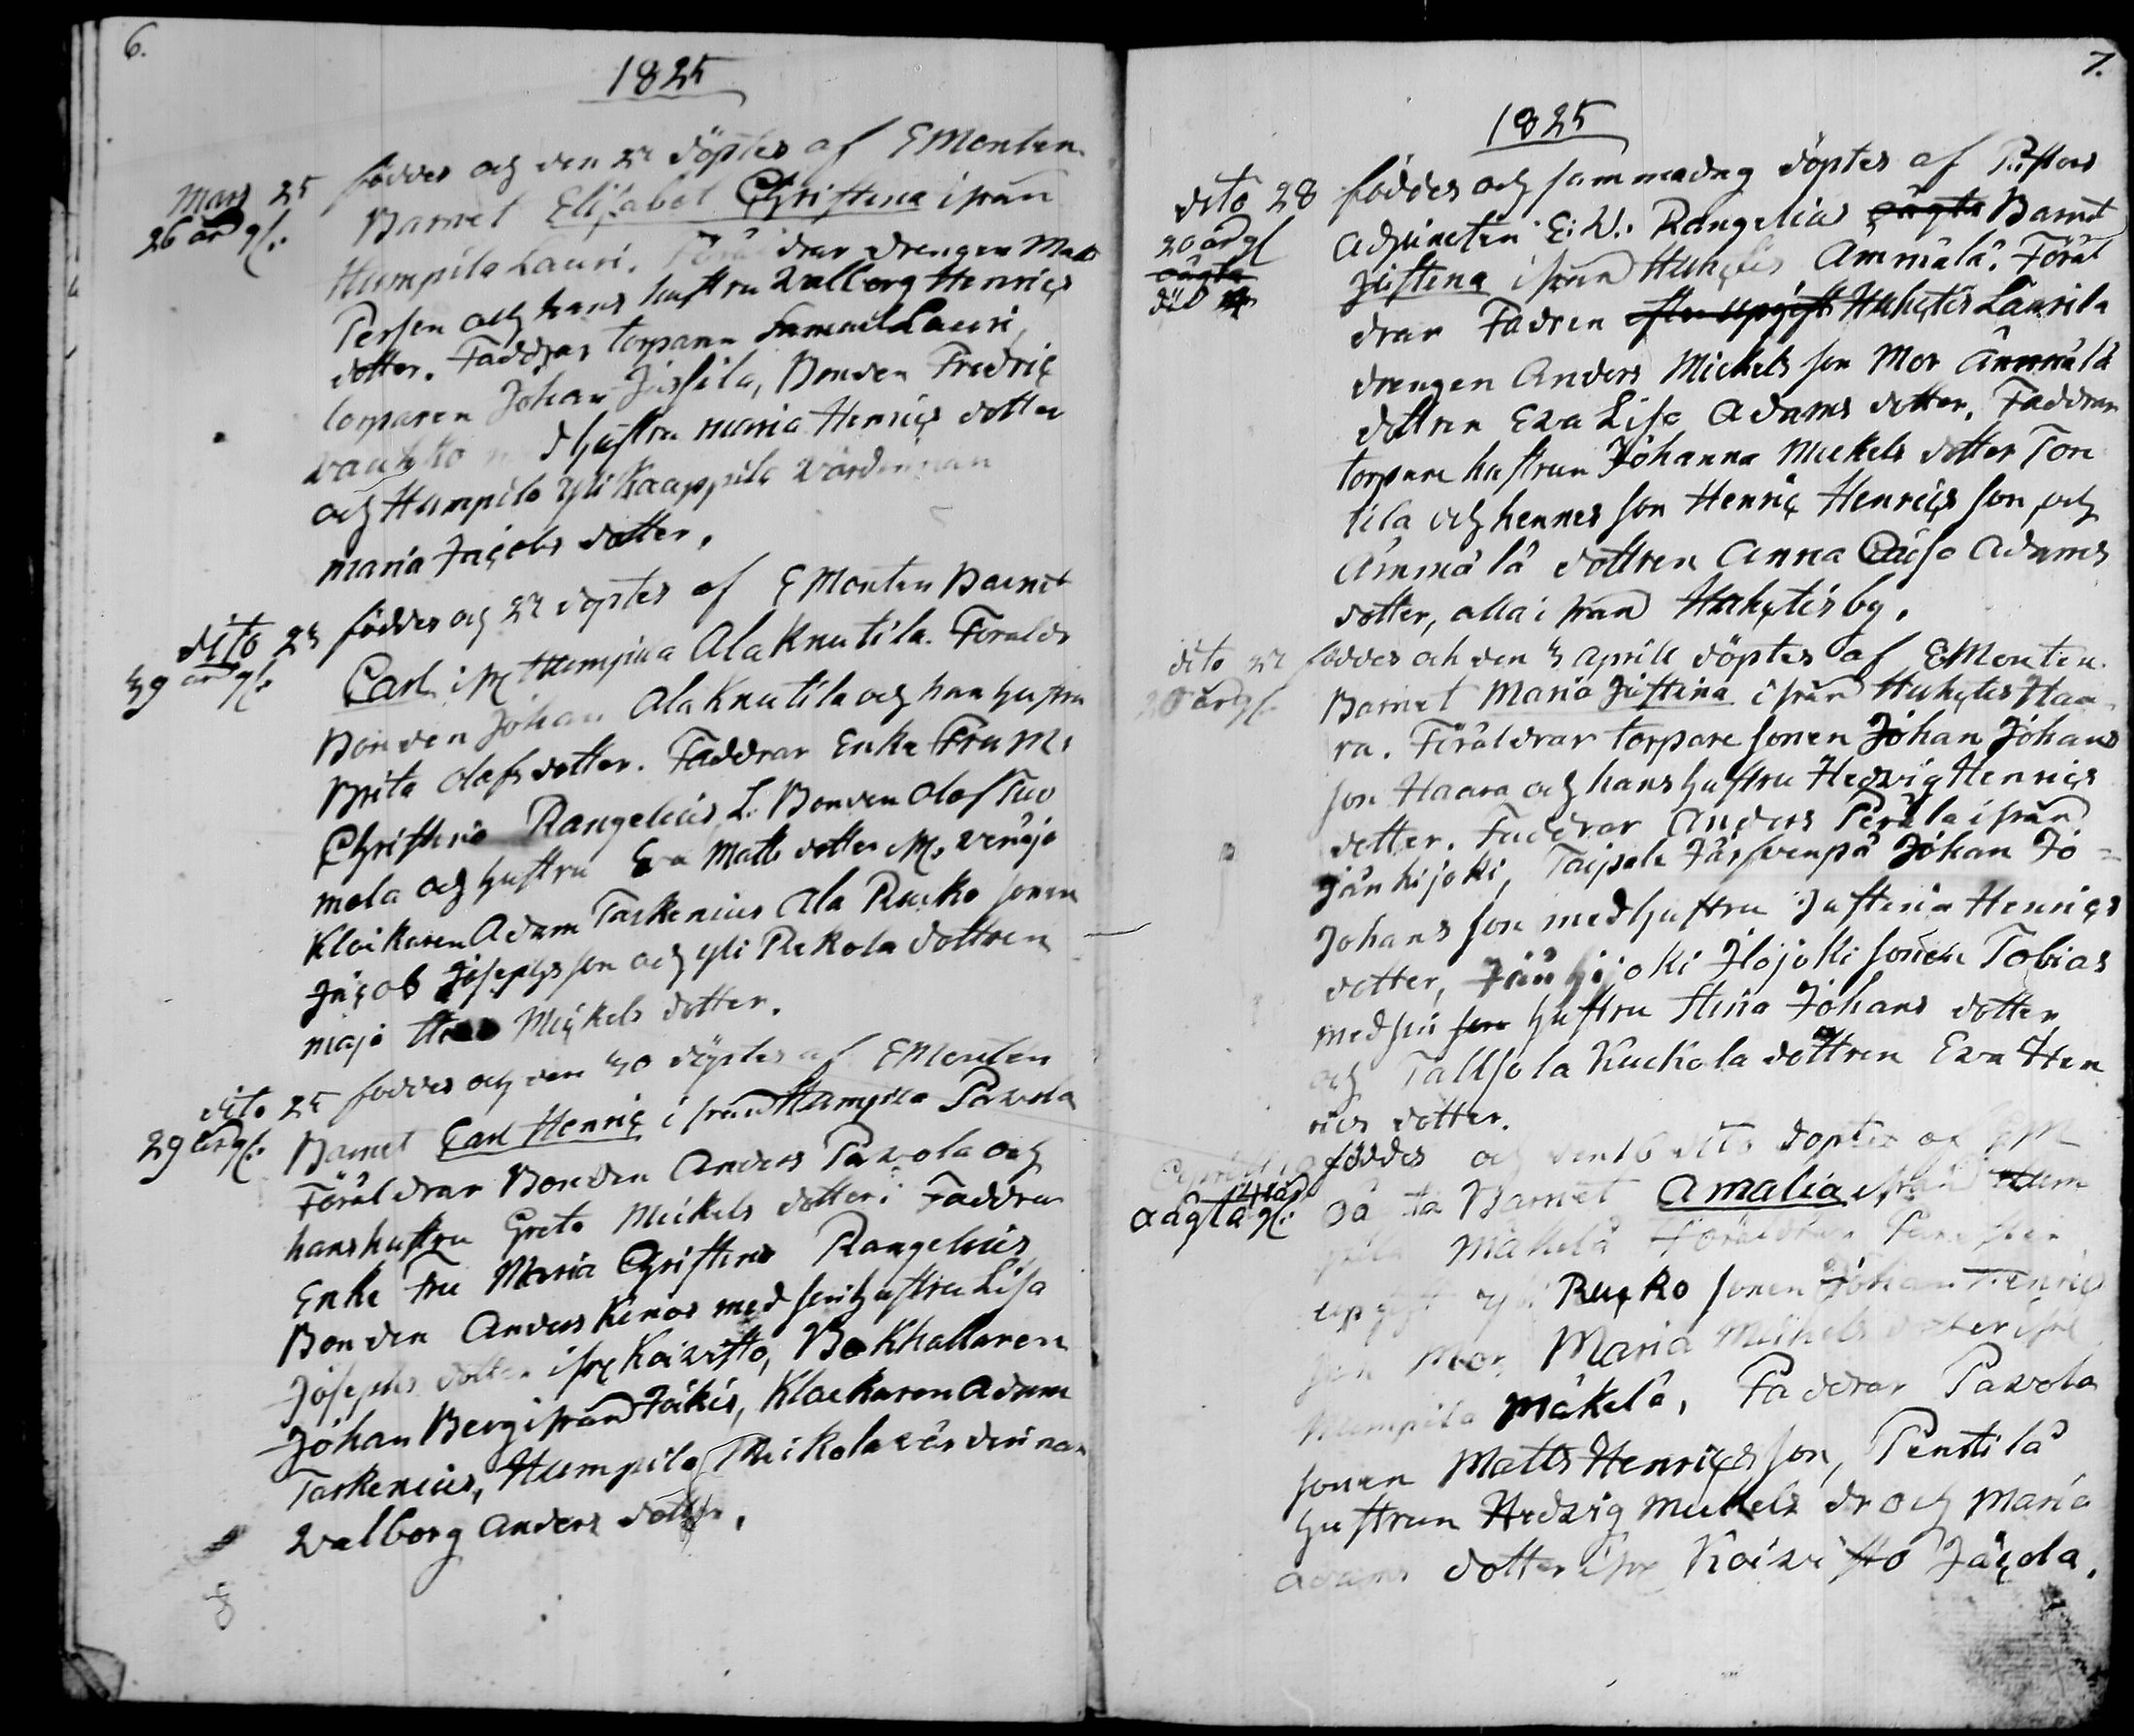 6.
1825
Mars 25 föddes och den 27 döptes af E Monten
26 år gl. Barnet Elisabet Christina ifrån
Humpila Lauri. Föräldrar drengen Matts
Persson och hans hustru Walborg Henrics
dotter. Faddrar torparen Samuel Lauri,
torparen Johan Jussila, Bonden Fredric
hustru Maria Henrics dotter
och Humpila Yli Kaappila Värdinnan
Maria Jacobs dotter.
dito 23 föddes och 27 döptes af E Monten Barnet
39 år gl. Carl ifr Humpila Ala Knutila. Föräldr
Bonden Johan Ala Knutila och hans hustru
Brita Olofs dotter. Faddrar Enke Fru M.
Christina Rangelius, L. Bonden Olof Tuo
mola och hustru Eva Matts dotter ifr. Venäjä
Klockaren Adam Taskenius Ala Rucko sonen
Jacob Josephs son och Yli Rekola dottren
Maja Mickels dotter.
dito 25 föddes och den 30 döptes af E Monten
29 år gl. Barnet Carl Henric ifrån Humpila Pavola
Föräldrar Bonden Anders Pavola och
hans hustru Greta Mickels dotter. Faddrar
Enke Fru Maria Christina Rangelius
Bonden Anders Keno med sin hustru Lisa
Josephs dotter ifr Koivisto, Bokhallaren
Johan Berg ifrån Jokis, Klockaren Adam
Taskenius, Humpila Rekola värdinnan
Walborg Anders dotter.
8
7.
1825
dito 28 föddes och samma dag döptes af Pastors
20 år gl adjuncten E: W: Rangelius oägta Barnet
oägta Justina ifrån Huhtis Ammälä. Föräl
död drar Fadren efter upgift Huhtis Laurila
drengen Anders Mickels son Mor Ammälä
dottren Eva Lisa Adams dotter. Faddrar
torpare hustrun Johanna Mickels dotter Ton
tila och hennes son Henric Henrics son och
Ammälä dottren Anna Caisa Adams
dotter, alla ifrån Huhtis by.
dito 27 föddes och den 3 Aprill döptes af E Monten
20 år gl. Barnet Maria Justina ifrån Huhtis Haa
ra. Föräldrar torpare sonen Johan Johans
son Haara och hans hustru Hedvig Henrics
dotter. Faddrar Anders Perälä ifrån
Jänhijoki, Taipale Järfvenpä Johan Jo=
Johans son med hustru Justina Henrics
dotter, Jänhijoki Ilojoki sonen Tobias
med sin son hustru Stina Johans dotter
och Tallsola Kuckola dottren Eva Hen
rics dotter.
Aprill föddes och den 16 dito döptes af EM
oägta gl. oä ta Barnet Amalia ifrån Hum
pila Mäkelä Föräldrar Far efter
upgift Yli Rucko sonen Johan Henrics
son Mor Maria Mickels dotter ifr
Humpila Mäkelä. Faddrar Pavola
sonen Matts Henrics son, Penttilä
hustrun Hedvig Mickels dr och Maria
Adams dotter ifr Koivisto Jäcola.